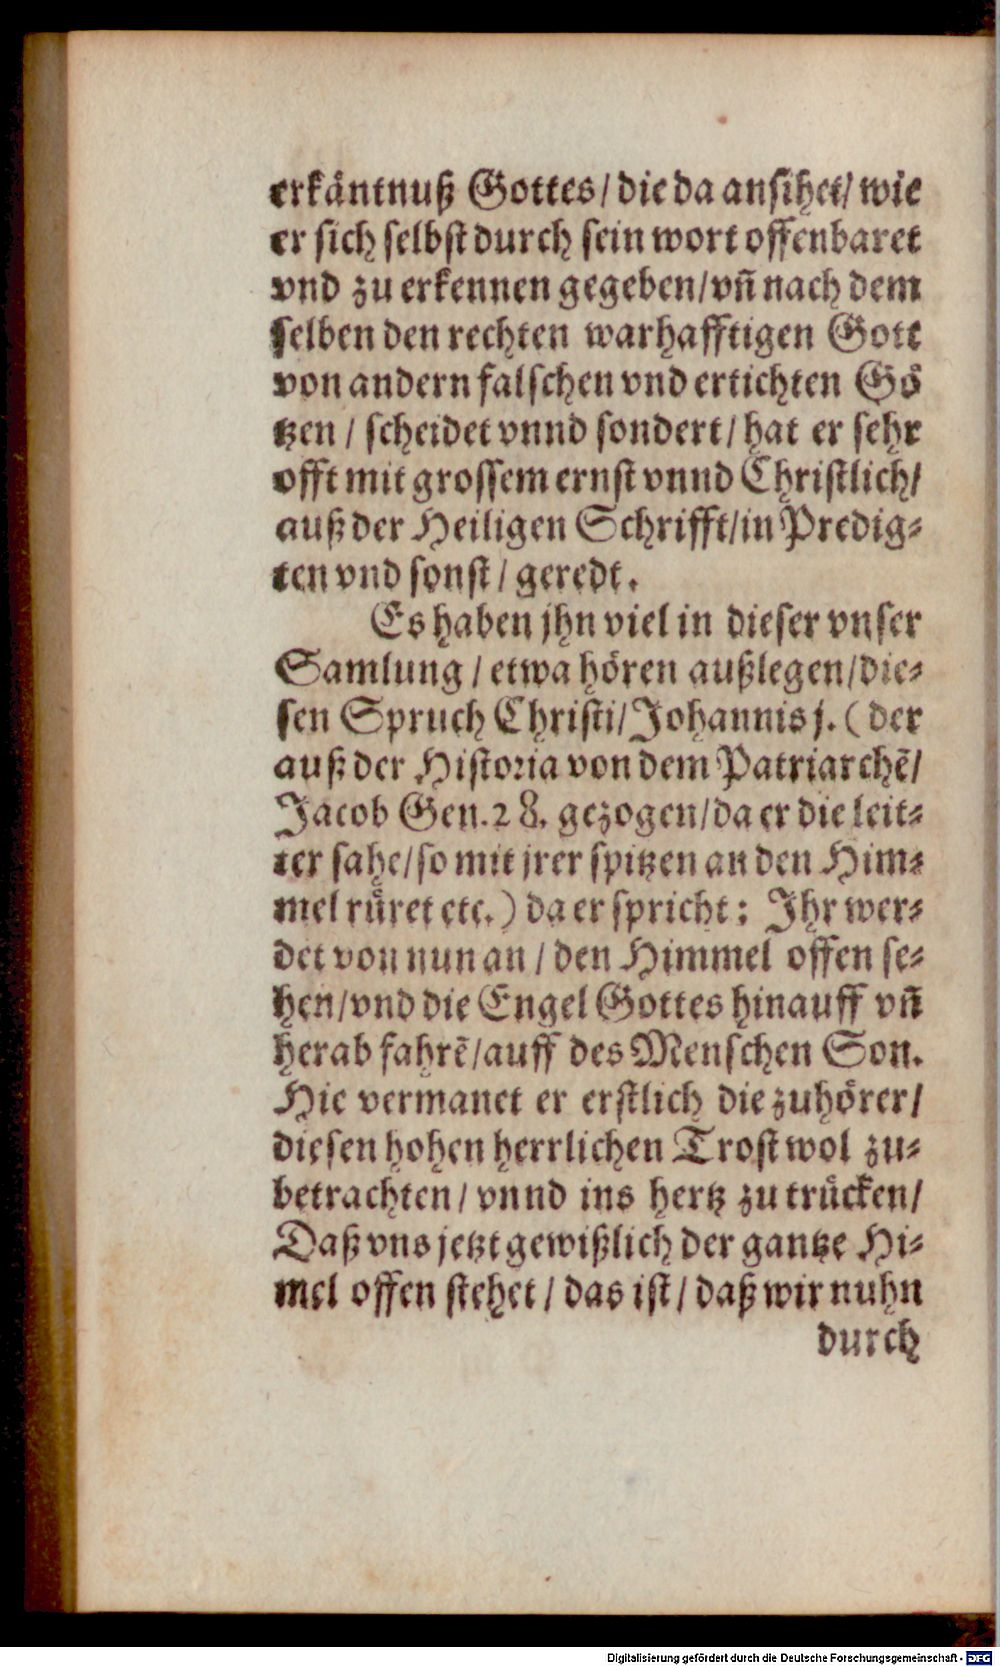 erkäntnuß Gottes/ die da ansihet/ wie
er sich selbst durch sein wort offenbaret
vnd zu erkennen gegeben/ vn̄ nach dem
selben den rechten warhafftigen Gott
von andern falschen vnd ertichten Gö
tzen / scheidet vnnd sondert/ hat er sehr
offt mit grossem ernst vnnd Christlich/
auß der Heiligen Schrifft/ in Predig⸗
ten vnd sonst / geredt.
Es haben jhn viel in dieser vnser
Samlung / etwa hören außlegen/ die⸗
sen Spruch Christi/ Johannis j. ( der
auß der Historia von dem Patriarchē/
Jacob Gen. 28. gezogen/ da er die leit⸗
ter sahe/ so mit jrer spitzen an den Him⸗
mel rüret etc.) da er spricht: Jhr wer⸗
det von nun an / den Himmel offen se⸗
hen/ vnd die Engel Gottes hinauff vn̄
herab fahrē/ auff des Menschen Son.
Hie vermanet er erstlich die zuhörer/
diesen hohen herrlichen Trost wol zu⸗
betrachten/ vnnd ins hertz zu trücken/
Daß vns jetzt gewißlich der gantze Hi⸗
mel offen stehet / das ist / daß wir nuhn
durch
Digitalisierung gefördert durch die Deutsche Forschungsgemeinschaft - DFG